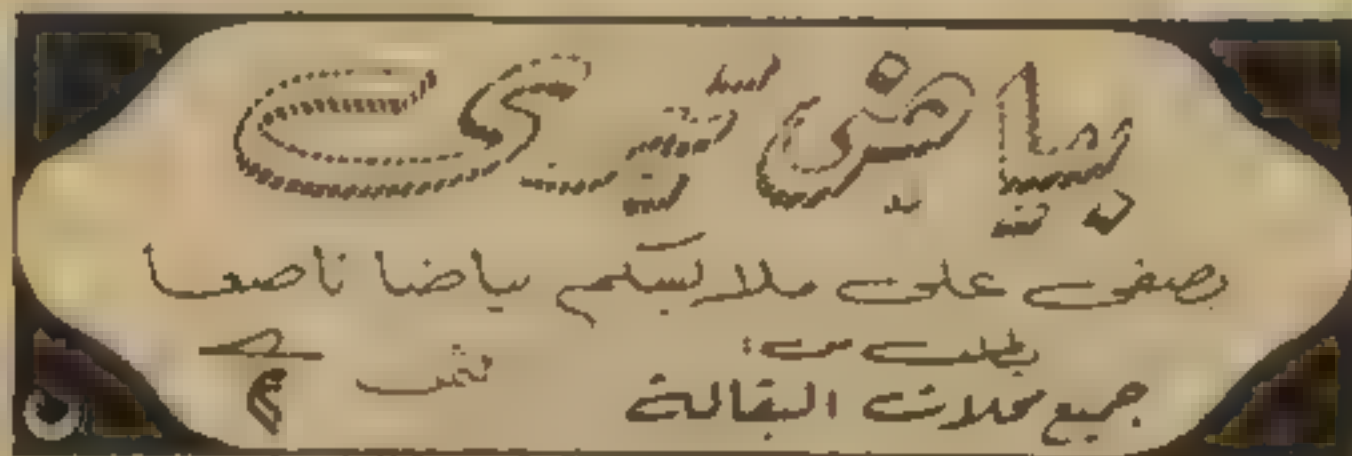 بياض تيرى
يضفى على ملابسكم بياضا ناصعا
يطلب من:
جميع محلات البقالة